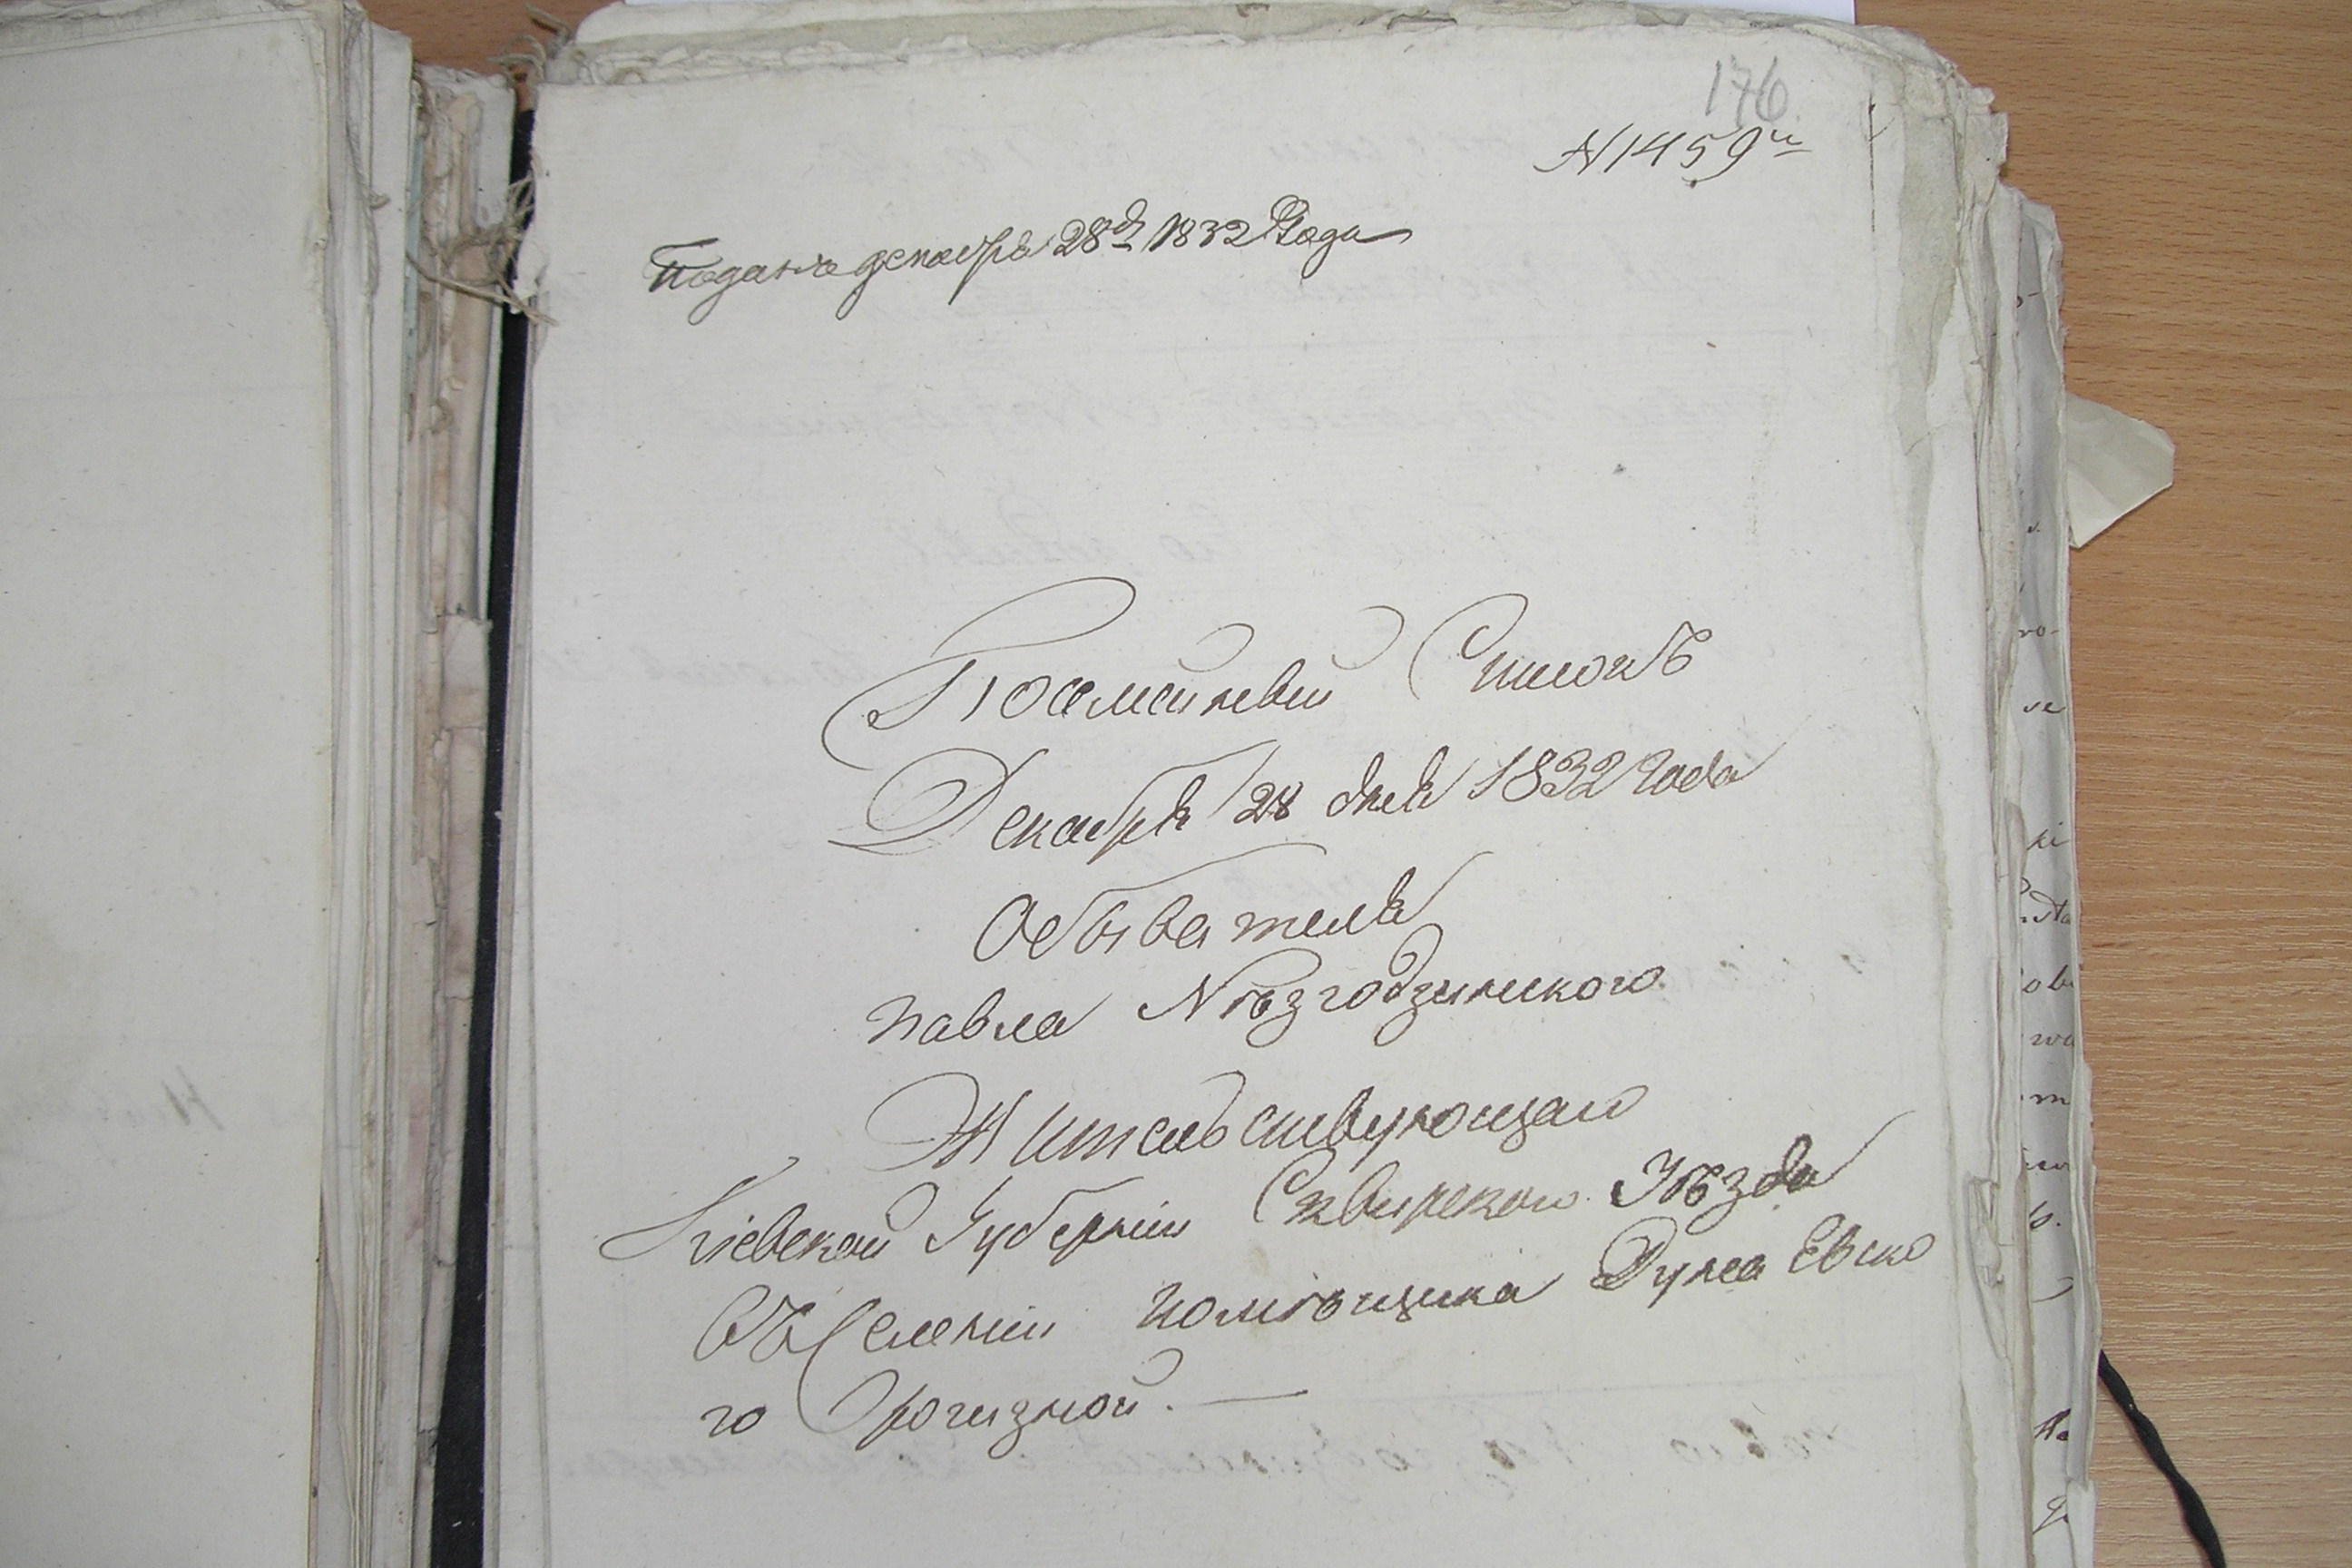 176
N 1459й
Подано декабря 28д 1832 Года
Посемейнвй Список
Декабря 28 дня 1832 Года
Обывателя
Павла Нѣзгодзинского
Жительствующаго
Кіевской Губерніи Сквирского Уѣзда
въ Селеніи помѣщика Дунаевско
го